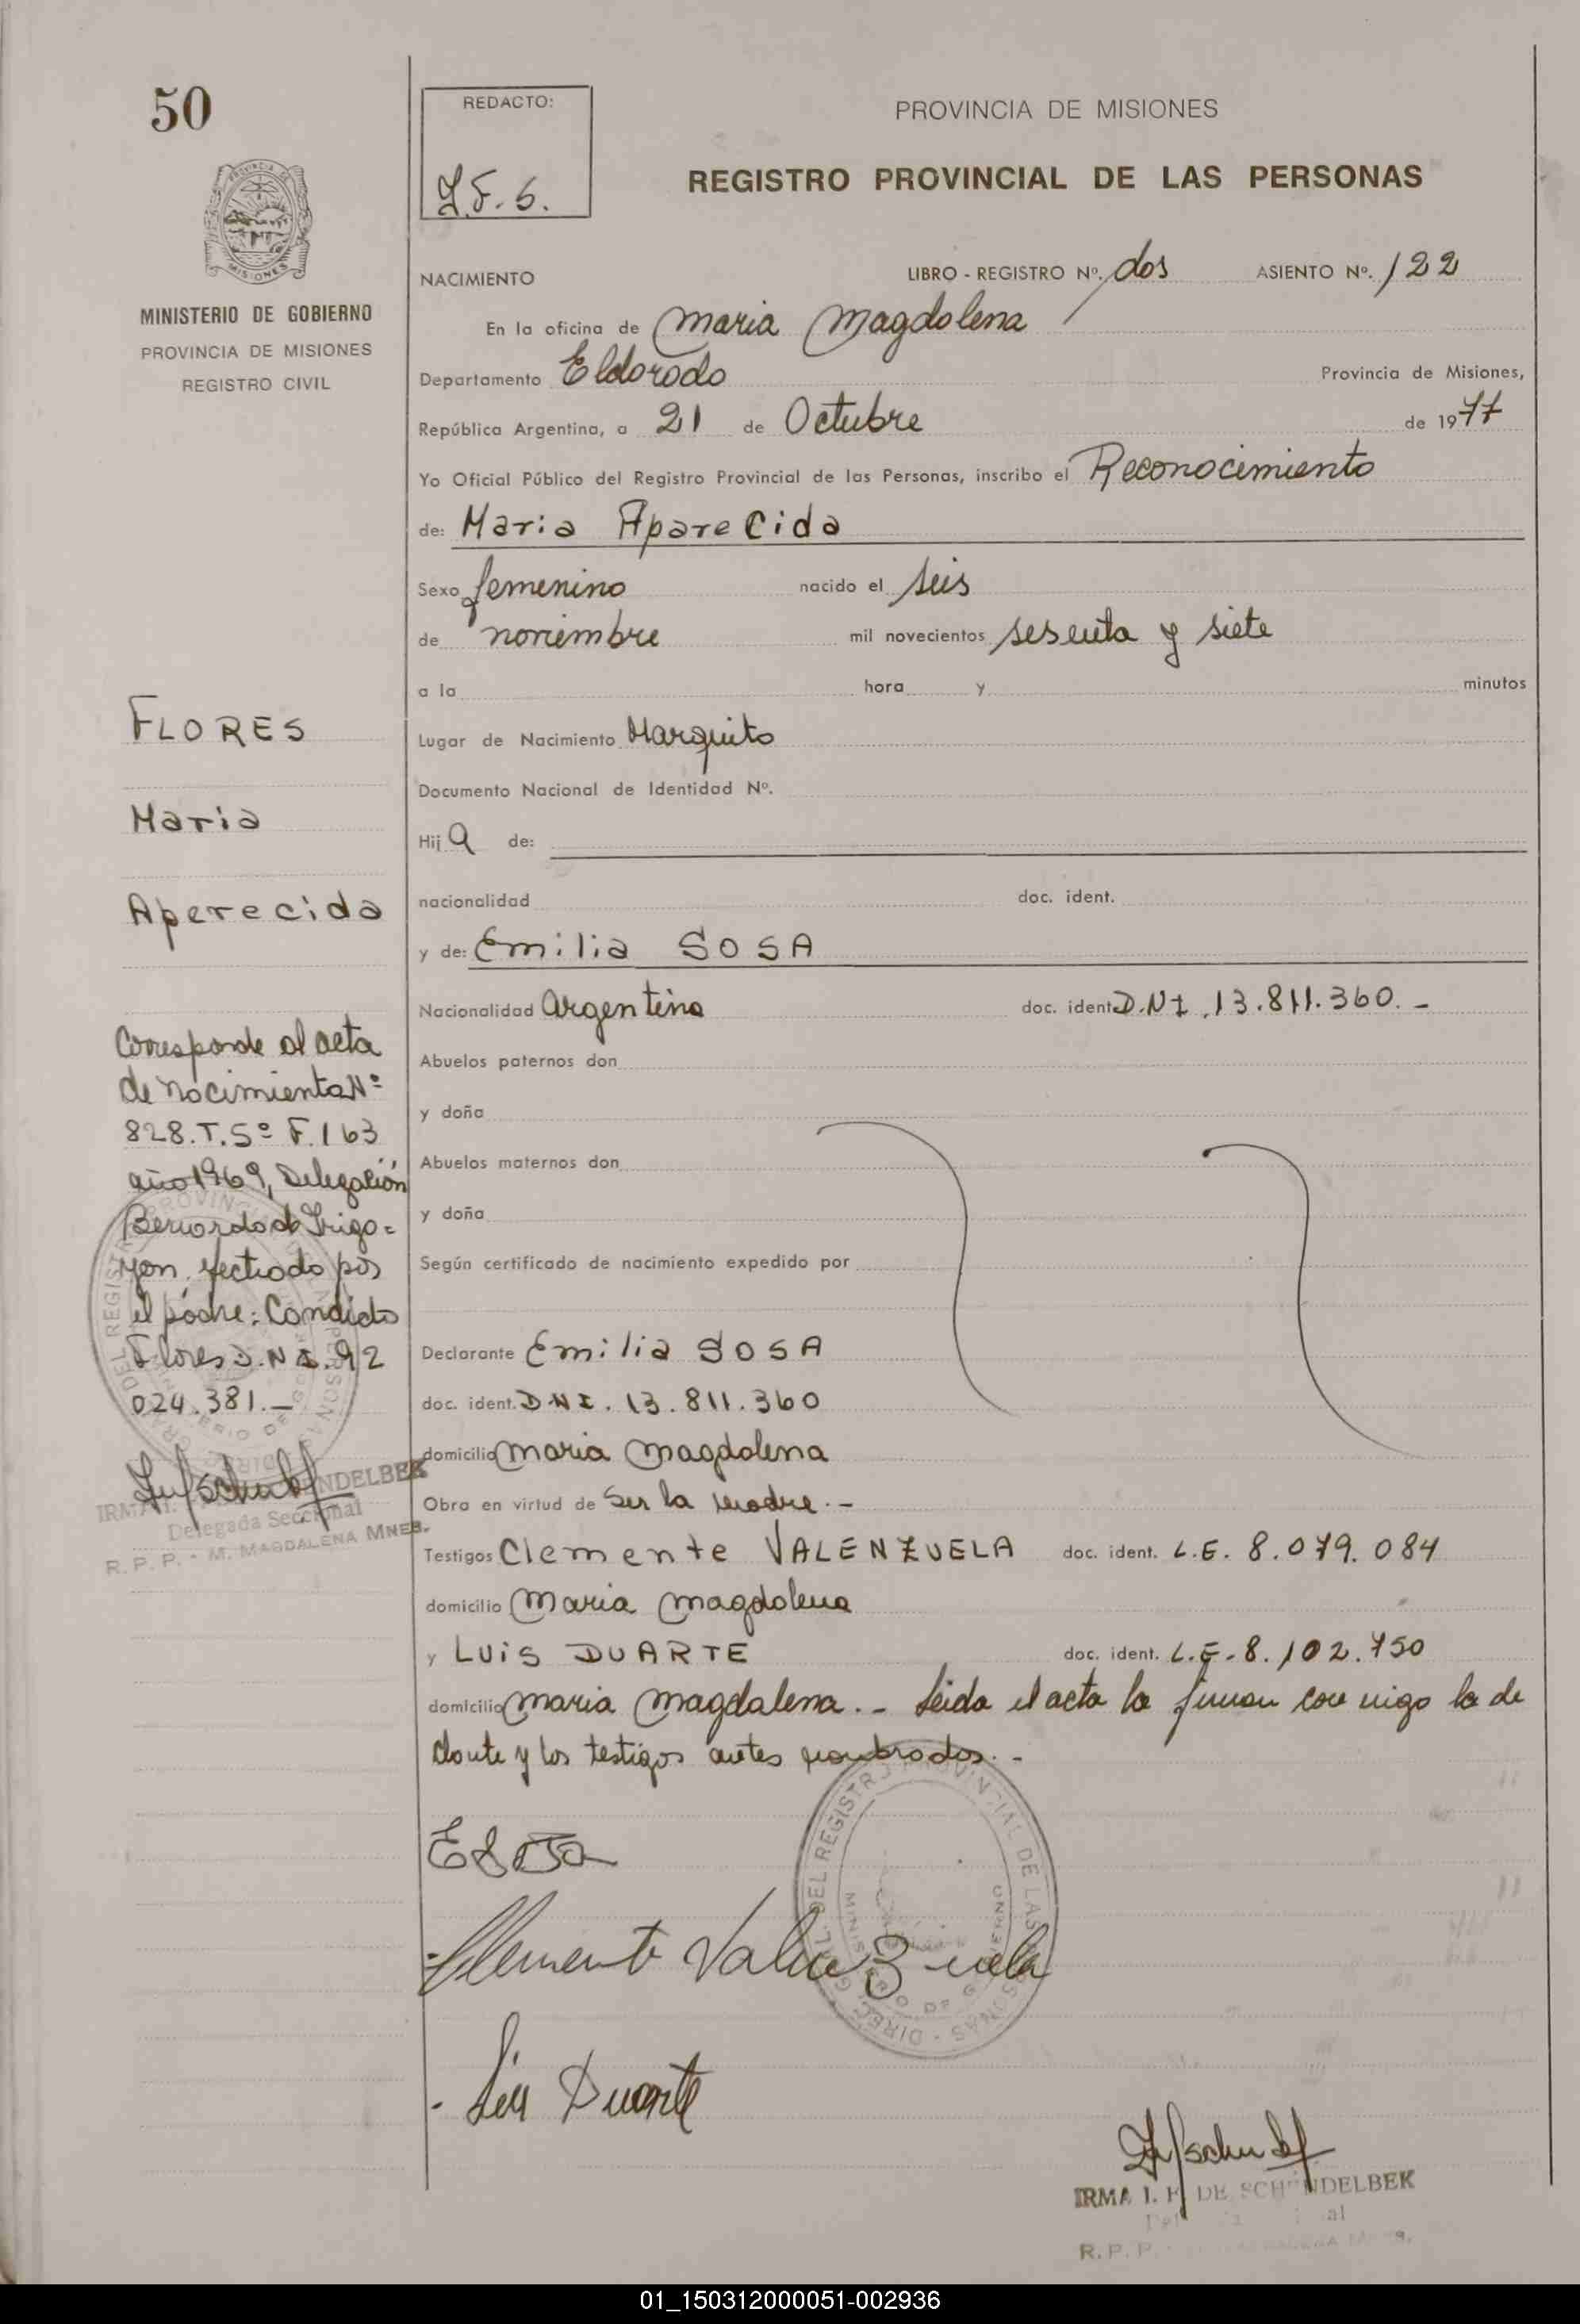 50
MINISTERIO DE GOBIERNO
PROVINCIA DE MISIONES
REGISTRO CIVIL
FLORES
Maria
Aperecida
Corresponde al acta
de nacimiento Nº
828. T. 5º F. 163
año 1969, Delegación
Bernardo de Irigo=
yen, efectuado por
el padre: Candido
Flores D.N.I. 92
024.381.—
IRMA I. NDELBEK
Delegada Seccional
R. P. P. - M. MAGDALENA MNES.
REDACTO:
PROVINCIA DE MISIONES
REGISTRO PROVINCIAL DE LAS PERSONAS
NACIMIENTO LIBRO - REGISTRO Nº. dos ASIENTO Nº. 122
En la oficina de Maria Magdalena
Departamento Eldorado Provincia de Misiones,
República Argentina, a 21 de Octubre de 1977
Yo Oficial Público del Registro Provincial de las Personas, inscribo el Reconocimiento
de: Maria Aparecida
Sexo femenino nacido el seis
de noviembre mil novecientos sesenta y siete
a la hora y minutos
Lugar de Nacimiento Marquito
Documento Nacional de Identidad Nº.
Hij a de:
nacionalidad doc. ident.
y de: Emilia SOSA
Nacionalidad Argentina doc. ident. D.N.I. 13.811.360.-
Abuelos paternos don
y doña
Abuelos maternos don
y doña
Según certificado de nacimiento expedido por
Declarante Emilia SOSA
doc. ident. DNI. 13.811.360
domicilio Maria Magdalena
Obra en virtud de Ser la madre.-
Testigos Clemente VALENZUELA doc. ident. L.E. 8.079.084
domicilio Maria Magdalena
y LUIS DUARTE doc. ident. L.E. 8.102.750
domicilio Maria Magdalena.- Leida el acta la firman con migo la de
clante y los testigos antes nombrados.-
Clemente Valenzuela
Luis Duarte
IRMA I. F. DE SCHÖNDELBEK
R. P. P.
01_150312000051-002936